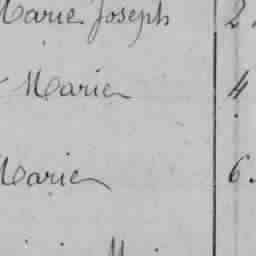 Marie Joseph 2.
Marien 4.
Marien 6.